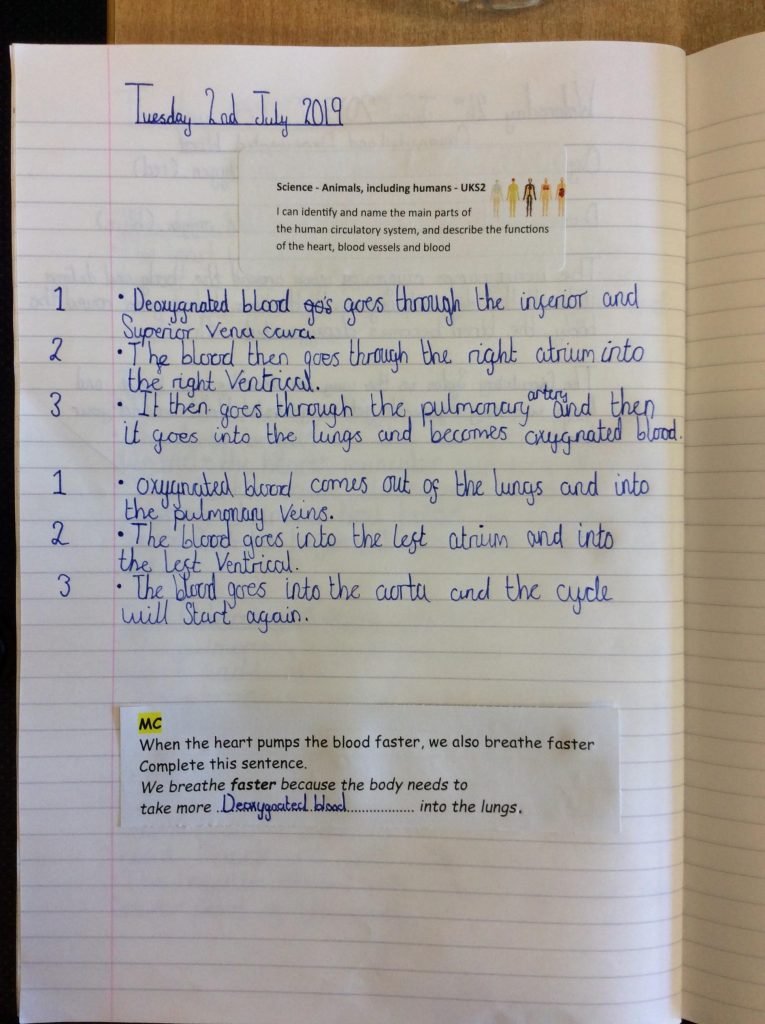 Tuesday 2nd July 2019
Science - Animals, including humans - UKS2
I can identify and name the main parts of
the human circulatory system, and describe the functions
of the heart, blood vessels and blood
1 • Deoxygnated blood go's goes through the inferior and
Superior Vena cava.
2 • The blood then goes through the right atrium into
the right Ventrical.
3 • It then goes through the pulmonary artery and then
it goes into the lungs and becomes oxygnated blood.
1 • oxygnated blood comes out of the lungs and into
the pulmonary veins.
2 • The blood goes into the left atrium and into
the left Ventrical.
3 • The blood goes into the aorta and the cycle
will Start again.
MC
When the heart pumps the blood faster, we also breathe faster
Complete this sentence.
We breathe faster because the body needs to
take more ..Deoxygnated blood.................. into the lungs.